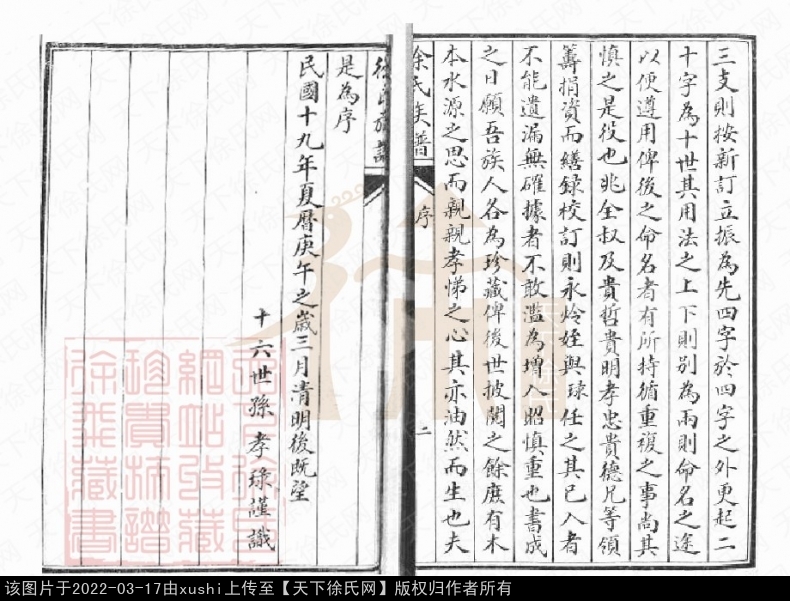 三支則按新訂立振為先四字於四字之外更起二
十字為十世其用法之上下則別為兩則命名之途
以便遵用俾後之命名者有所持循重複之事尚其
慎之是役也兆全叔及貴哲貴明孝忠貴德兄等領
籌捐資而繕録校訂則永烚姪與琭任之其已入者
不能遺漏無確據者不敢濫為增入昭慎重也書成
之日願吾族人各為珍藏俾後世披閱之餘庶有木
本水源之思而親親孝悌之心其亦油然而生也夫
徐氏族譜
序
二
徐氏族譜
是為序
民國十九年夏曆庚午之歲三月清明後既望
十六世孫孝琭謹識
天下徐氏
網站收藏
珍貴族譜
徐彝藏書
该图片于2022-03-17由xushi上传至【天下徐氏网】版权归作者所有